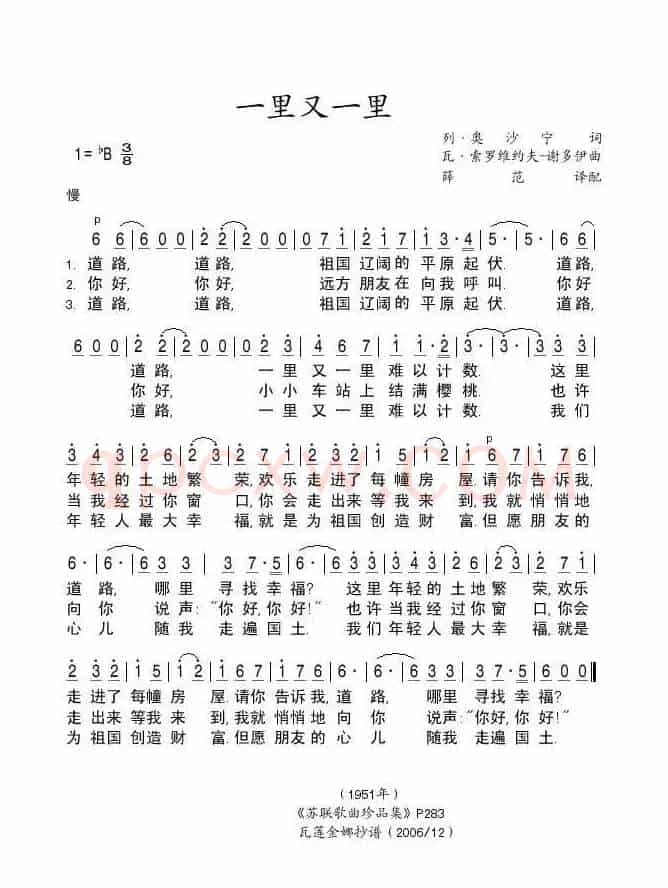 一里又一里
列·奥沙宁 词
1= ♭B 3/8
瓦·索罗维约夫-谢多伊曲
薛 范 译配
慢
p
6 6 | 6 0 0 | 2 2 | 2 0 0 | 0 7 1 | 2 1 7 | 1 3· 4 | 5· | 5· | 6 6 |
1. 道路, 道路, 祖国 辽阔的 平原 起伏. 道路,
2. 你好, 你好, 远方 朋友在 向我 呼叫. 你好
3. 道路, 道路, 祖国 辽阔的 平原 起伏. 道路,
6 0 0 | 2 2 | 2 0 0 | 0 2 3 | 4 6 7 | 1 1· 2 | 3· | 3· | 3 4 5 |
道路, 一里 又一里 难以 计数. 这里
你好, 小小 车站上 结满 樱桃. 也许
道路, 一里 又一里 难以 计数. 我们
3 4 3 | 2 6 | 2 | 2 7 1 | 2 3 2 | 1 5 | 1 | 1 2 1 | 7 6 1 |
年轻的 土地 繁 荣,欢乐 走进了 每幢 房 屋.请你 告诉我,
当我 经过 你 窗 口,你会 走出来 等我 来 到,我就 悄悄地
年轻人 最大 幸 福,就是 为祖国 创造 财 富.但愿 朋友的
6· | 6· | 6 3 3 | 3 7· 5 | 6· | 6 3 3 | 3 4 3 | 2 6 | 2 | 2 7 1 |
道路, 哪里 寻找 幸福? 这里 年轻的 土地 繁 荣,欢乐
向你 说声:“你好,你好!” 也许 当我 经过 你 窗 口,你会
心儿 随我 走遍 国土. 我们 年轻人 最大 幸 福,就是
2 3 2 | 1 5 | 1 | 1 2 1 | 7 6 1 | 6· | 6· | 6 3 3 | 3 7· 5 | 6 0 0 ‖
走进了 每幢 房 屋.请你 告诉我, 道路, 哪里 寻找 幸福?
走出来 等我 来 到,我就 悄悄地 向你 说声:“你好,你好!”
为祖国 创造 财 富.但愿 朋友的 心儿 随我 走遍 国土.
(1951年)
《苏联歌曲珍品集》P283
瓦莲金娜抄谱 (2006/12)